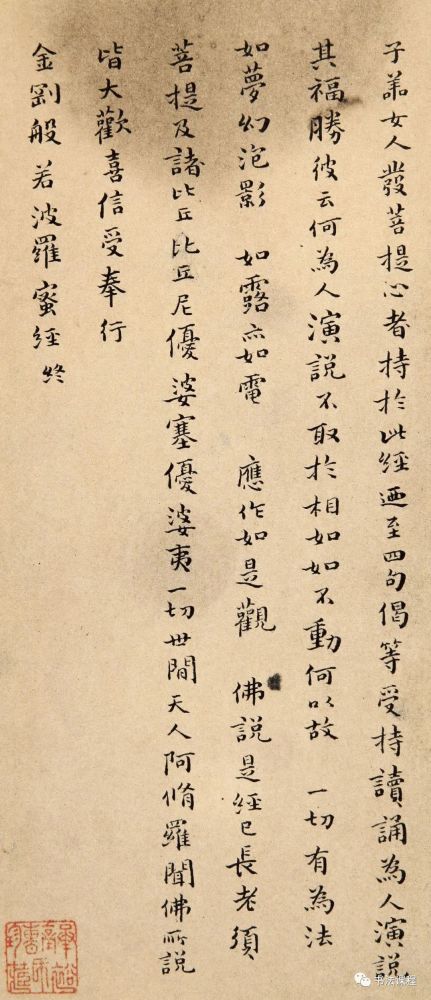 子善女人發菩提心者持於此經廼至四句偈等受持讀誦為人演說
其福勝彼云何為人演說不取於相如如不動何以故 一切有為法
如夢幻泡影 如露亦如電 應作如是觀 佛說是經已長老須
菩提及諸比丘比丘尼優婆塞優婆夷一切世間天人阿脩羅聞佛所說
皆大歡喜信受奉行
金剛般若波羅蜜經終
书法课程